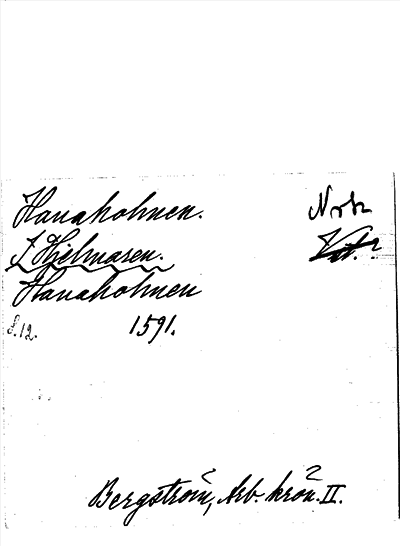 Hanaholmen.
I Hjelmaren.
Hanaholmen
S. 12.
1591.
Bergström, Arb. krön. II.